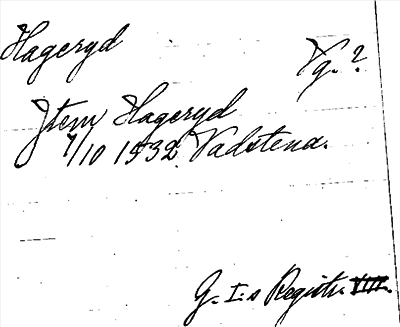 Hageryd
Vg. ?
Jtem Hageryd
7/10 1532. Vadstena.
G. I:s Registr. VIII.